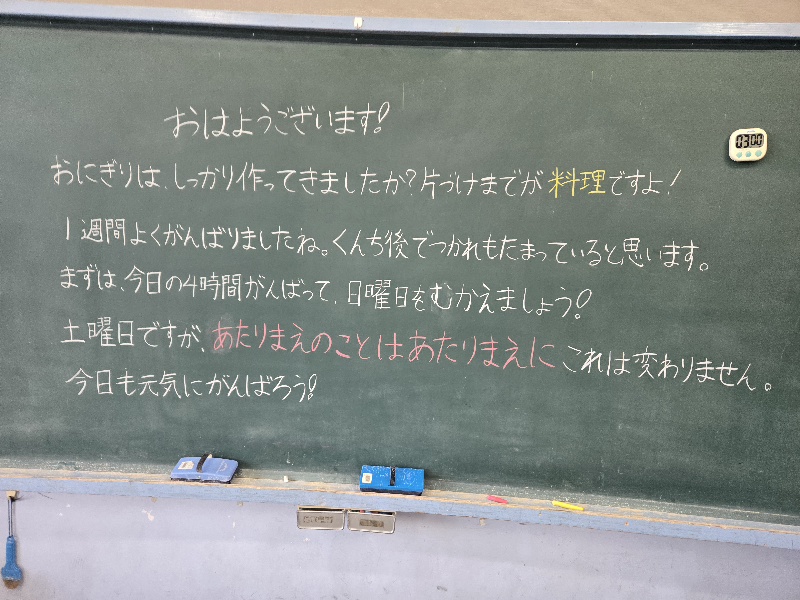 おはようございます!
おにぎりは、しっかり作ってきましたか?片づけまでが料理ですよ!
1週間よくがんばりましたね。くんち後でつかれもたまっていると思います。
まずは、今日の4時間がんばって、日曜日をむかえましょう!
土曜日ですが、あたりまえのことはあたりまえに これは変わりません。
今日も元気にがんばろう!